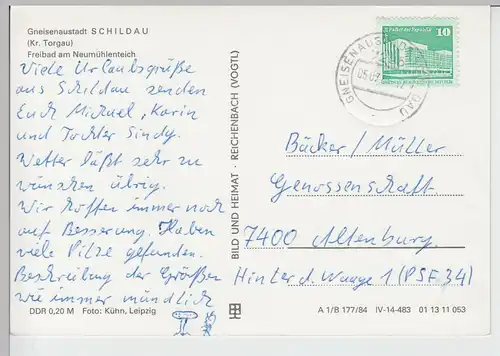 Gneisenaustadt SCHILDAU
(Kr. Torgau)
Freibad am Neumühlenteich
Viele Urlaubsgrüße
aus Schildau senden
Euch Michael, Karin
und Tochter Sindy.
Wetter läßt sehr zu
wünschen übrig.
Wir hoffen immer noch
auf Besserung. Haben
viele Pilze gefunden.
Beschreibung der Größen
wie immer mündlich
DDR 0,20 M Foto: Kühn, Leipzig
BILD UND HEIMAT · REICHENBACH (VOGTL)
GNEISENAUS
DAU
10
Bäcker/Müller
Genossenschaft
7400 Altenburg
Hinter d. Waage 1 (PSF 34)
A 1/B 177/84 IV-14-483 01 13 11 053